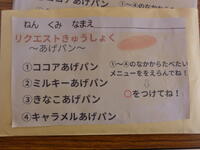 ねん くみ なまえ
リクエストきゅうしょく
～あげパン～
①ココアあげパン
②ミルキーあげパン
③きなこあげパン
④キャラメルあげパン
①～④のなかからたべたい
メニューをえらんでね！
↓
○をつけてね！